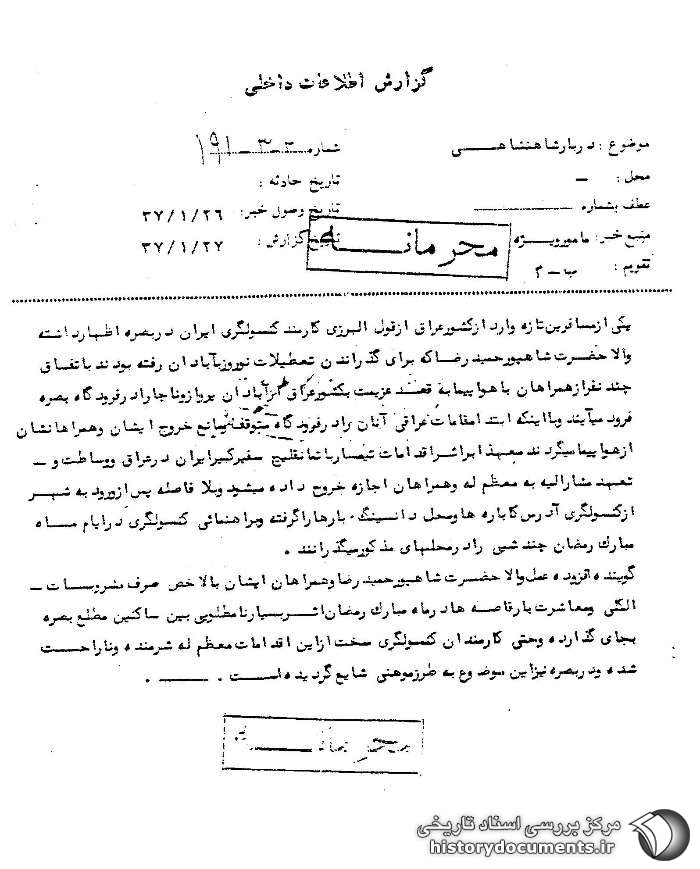 گزارش اطلاعات داخلی
موضوع : دربار شاهنشاهی
شماره ۱۹۱-۳-۳
محل : -
تاریخ حادثه :
عطف بشماره
تاریخ وصول خبر: ۳۷/۱/۲۶
منبع خبر: مامور ویژه
تاریخ گزارش : ۳۷/۱/۲۷
تقویم : ب-۲
محرمانه
یکی از مسافرین تازه وارد از کشور عراق از قول البرزی کارمند کنسولگری ایران در بصره اظهار داشته
والا حضرت شاهپور حمید رضا که برای گذراندن تعطیلات نوروز بآبادان رفته بودند باتفاق
چند نفر از همراهان با هواپیما به قصد عزیمت بکشور عراق از آبادان پرواز و ناچارا در فرودگاه بصره
فرود میآیند و با اینکه ابتدا مقامات عراقی آنان را در فرودگاه متوقف و مانع خروج ایشان و همراهانشان
از هواپیما میگردند معهذا بر اثر اقدامات تیمسار باتمانقلیج سفیر کبیر ایران در عراق و وساطت و -
تعهد مشارالیه به معظم له و همراهان اجازه خروج داده میشود و بلا فاصله پس از ورود به شهر
از کنسولگری آدرس کاباره ها و محل دانسینگ - بارها را گرفته و براهنمائی کنسولگری در ایام ماه
مبارک رمضان چند شبی را در محلهای مذکور میگذرانند .
گوینده افزوده عمل والا حضرت شاهپور حمید رضا و همراهان ایشان بالاخص صرف مشروبات -
الکلی و معاشرت با رقاصه ها در ماه مبارک رمضان اثر بسیار نامطلوبی بین ساکنین مطلع بصره
بجای گذارده و حتی کارمندان کنسولگری سخت از این اقدامات معظم له شرمنده و ناراحت
شده و در بصره نیز این موضوع به طرز موهنی شایع گردیده است .
محرمانه
مرکز بررسی اسناد تاریخی
historydocuments.ir